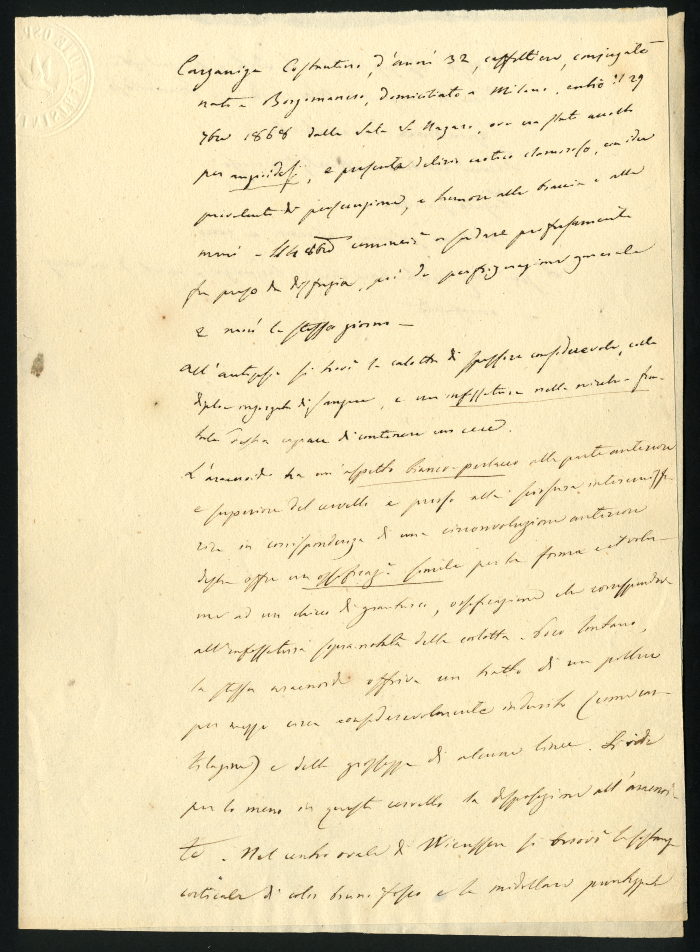 Corzaniga Costantino, d'anni 32, caffettiere, conjugato
nato a Borgomanero, domiciliato a Milano, entrò il 29
7bre 1868 dalla Sala S. Nazaro, ove era stato accolto
per , e presenta delirio erotico clamoroso, con idee
prevalenti di persecuzione, e tremore alle braccia e alle
mani - Il 4 8bre cominciò a sudare profusamente
fu preso da disfagia, poi da perfrigerazione generale
e morì lo stesso giorno -
All'autopsia si trovò la calotta di spessore considerevole, colla
diploe ingorgata di sangue, e una infossatura nella metà fron-
tale destra capace di contenere un cece.
L'aracnoide ha un aspetto bianco-perlaceo alla parte anteriore
e superiore del cervello e presso alla scissura interemisfe-
rica in corrispondenza di una circonvoluzione anteriore
destra offre una ossificazne simile per la forma e il volu-
me ad un chicco di granturco, ossificazione che corrispondeva
all'infossatura sopranotata della calotta. Poco lontano,
la stessa aracnoide offriva un tratto di un pollice
per mezzo circa considerevolmente indurito (come car-
tilagine) e dello spessore di alcune linee. Si vide
per lo meno in questo cervello la disposizione all'aracnoi-
te. Nel centro ovale di Vieussens si trovò la sostanza
corticale di color bruno fosco e la midollare punteggiata